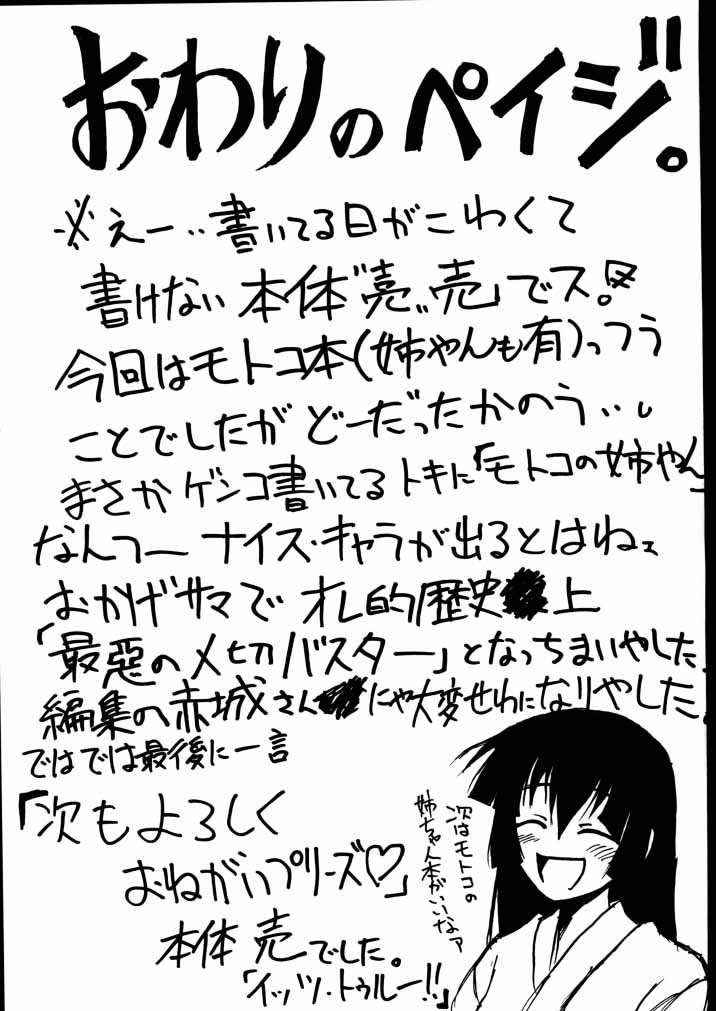 おわりのペイジ。
※えー‥書いてる日がこわくて
書けない本体〝売〟売」でス。
今回はモトコ本(姉やんも有)っつう
ことでしたがどーだったかのう‥。
まさかゲンコ書いてるトキに「モトコの姉やん」
なんつーナイス・キャラが出るとはねェ
おかげサマでオレ的歴史上
「最悪の〆切バスター」となっちまいやした。
編集の赤城さんにゃ大変せわになりやした。
ではでは最後に一言
「次もよろしく
おねがいプリーズ♡」
本体 売でした。
「イッツ・トゥルー!!」
次はモトコの
姉ちゃん本がいいなァ